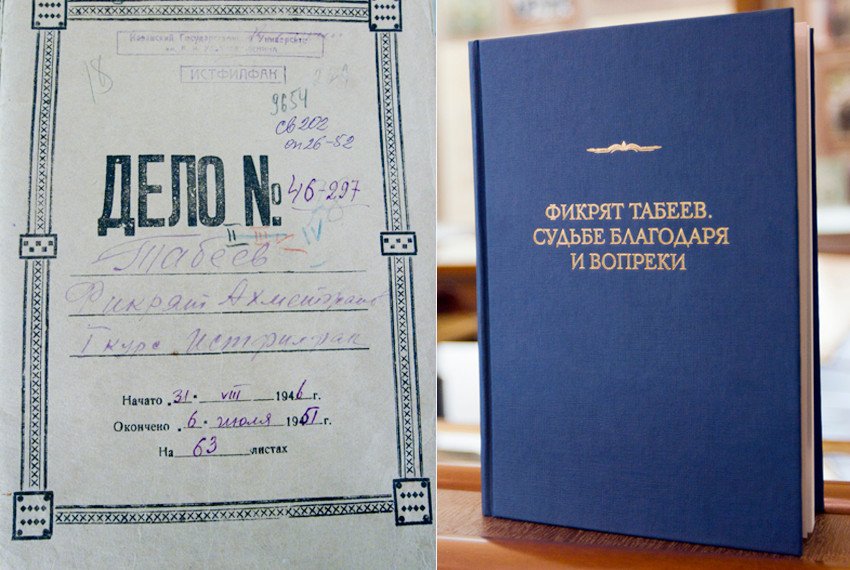 Казанский Государственный Университет
ИСТФИЛФАК
18
9654
св 202
оп 26-52
ДЕЛО №
46-297
II III V IV
Табеев
Фикрят Ахметджан
I курс Истфилфак
Начато „31" VIII 1946 г.
Окончено „6" июля 1951 г.
На 63 листах
ФИКРЯТ ТАБЕЕВ.
СУДЬБЕ БЛАГОДАРЯ
И ВОПРЕКИ